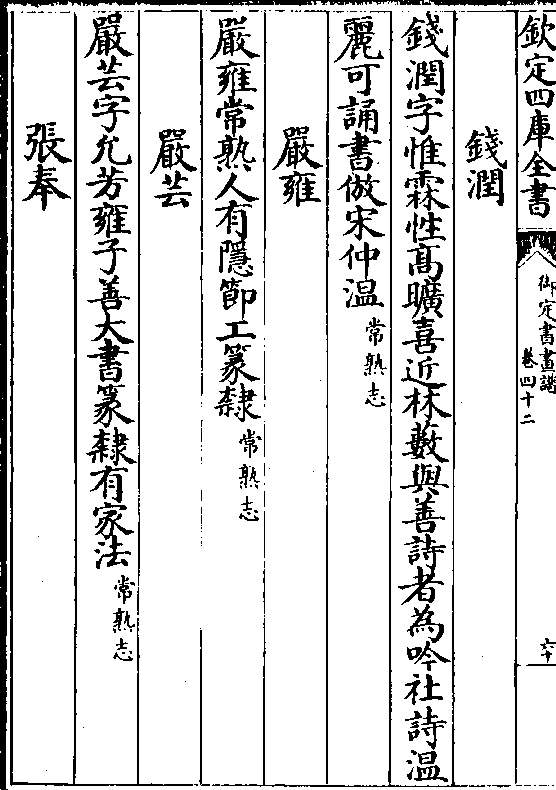 欽定四庫全書
御定書畫譜
卷四十二
六十
錢潤
錢潤字惟霖性髙曠喜近林藪與善詩者為吟社詩温
麗可誦書倣宋仲温常熟志
嚴雍
嚴雍常熟人有隱節工篆隸常熟志
嚴芸
嚴芸字允芳雍子善大書篆隸有家法常熟志
張奉